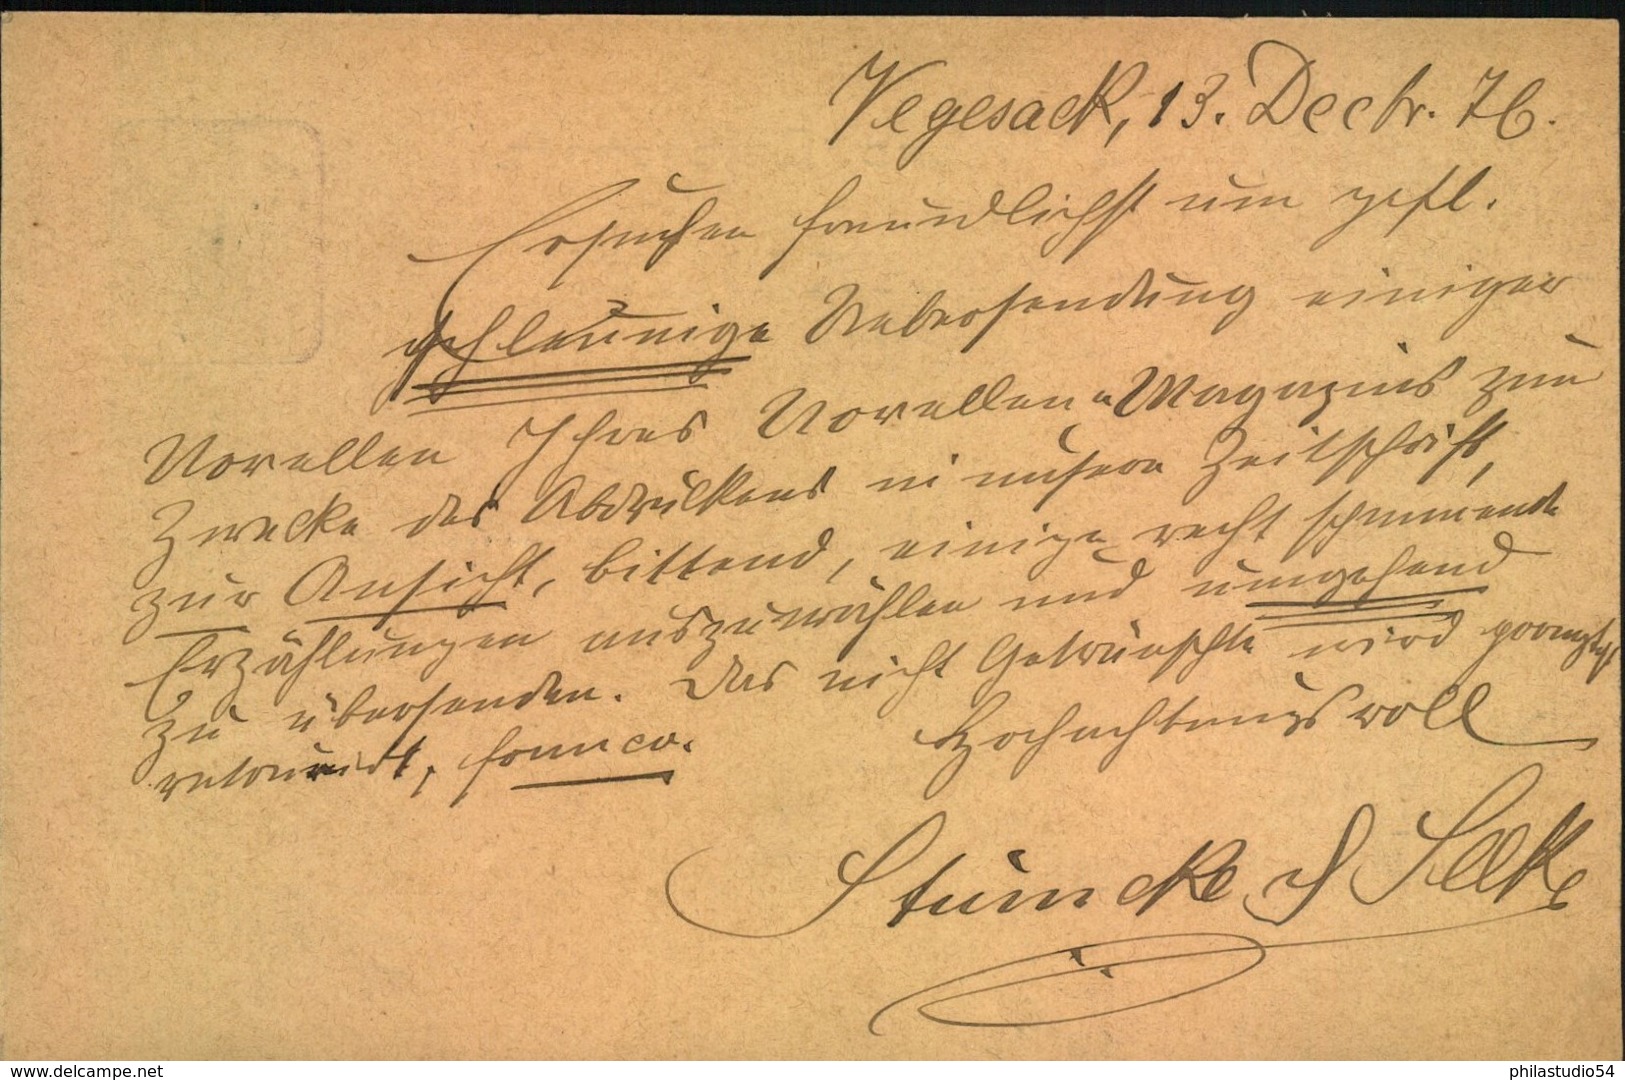 Vegesack, 13. Decbr. 76.
Ersuchen freundlichst um gefl.
schleunige Uebersendung einiger
Novellen Ihres Novellen-Magazins zum
Zwecke des Abdruckens in unsere Zeitschrift,
zur Ansicht, bittend, einige recht spannende
Erzählungen auszuwählen und umgehend
zu übersenden. Das nicht Gewünschte wird
retournirt, franco.
Hochachtungsvoll
Stümcke &
www.delcampe.net
philastudio54